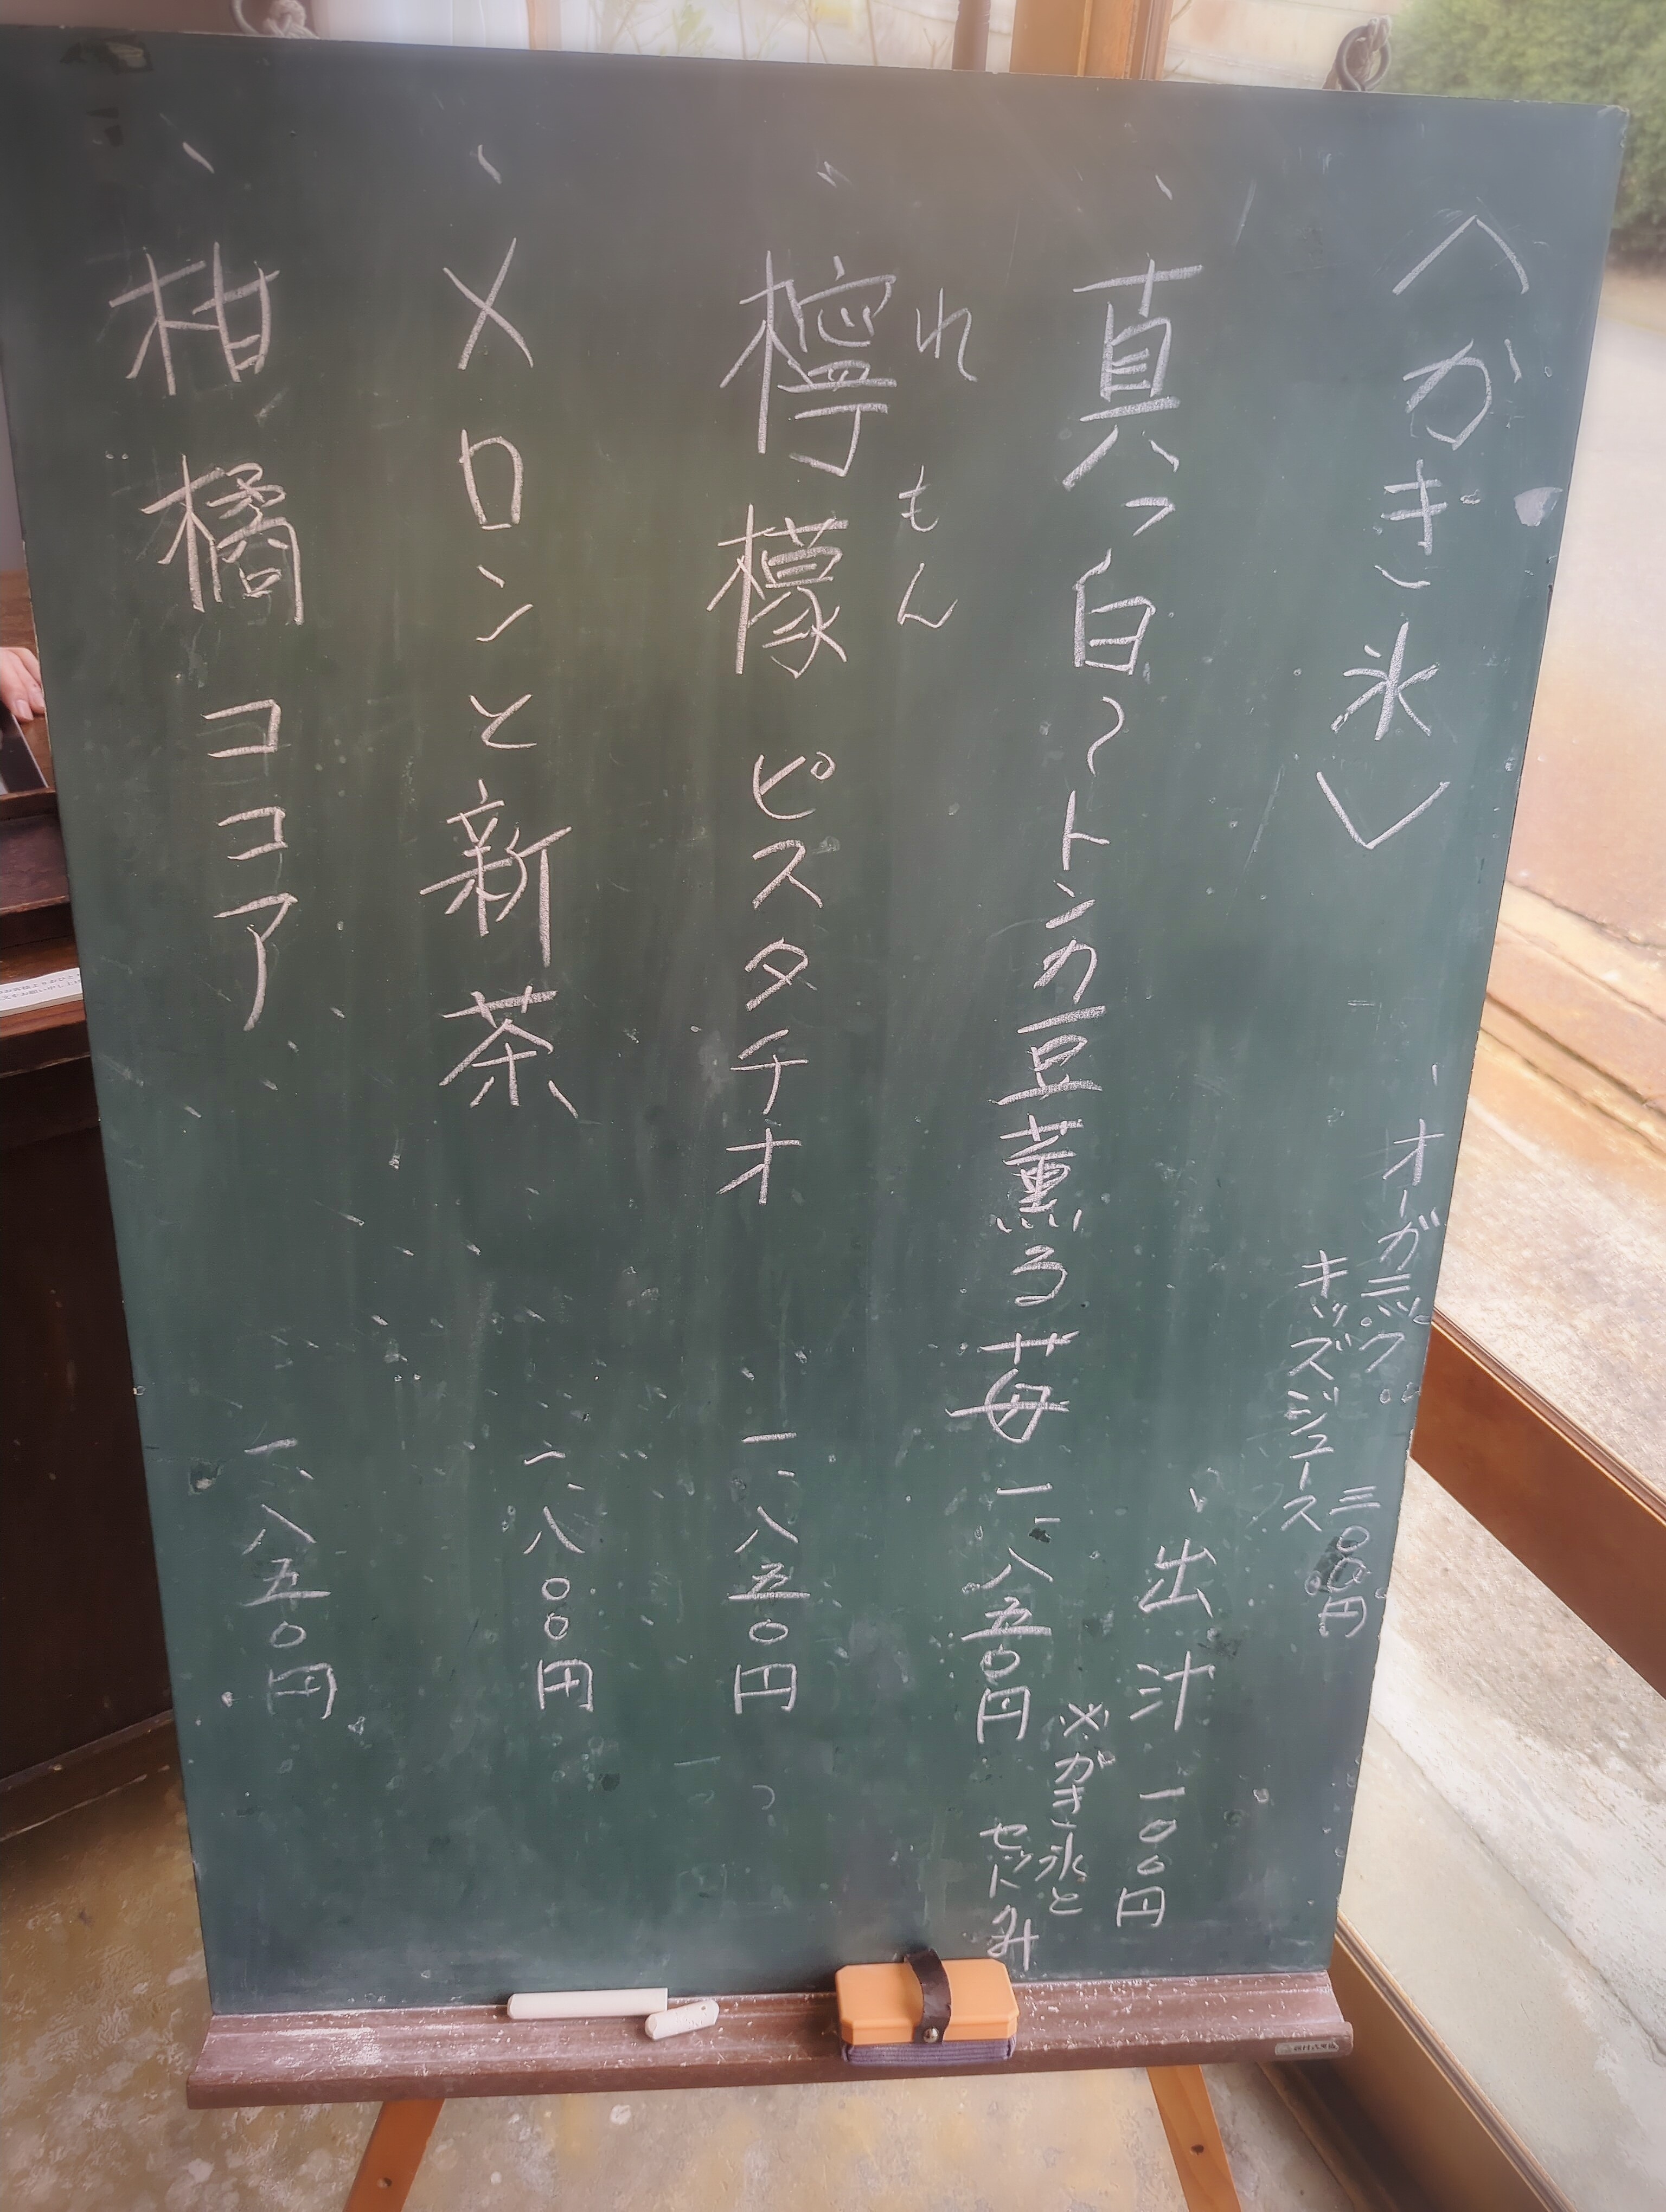 〈かき氷〉
、オーガニック
キッズジュース
三〇〇円
、出汁 一〇〇円
※かき氷と
セットのみ
、真っ白〜トンカ豆薫る苺 一、八五〇円
れもん
、檸檬 ピスタチオ 一、八五〇円
、メロンと新茶 一、八〇〇円
、柑橘ココア 一、八五〇円